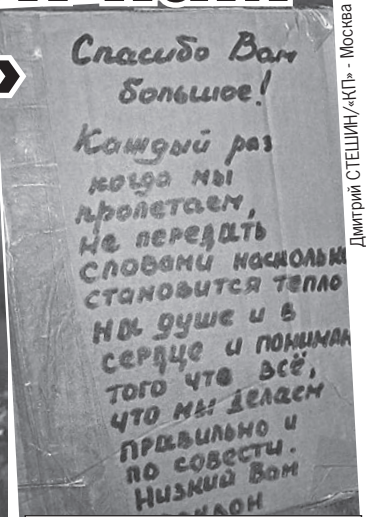 Спасибо Вам
большое!
Каждый раз
когда мы
пролетаем,
не передать
словами насколько
становится тепло
на душе и в
сердце и понимаем
того что всё,
что мы делаем
правильно и
по совести.
Низкий Вам
Дмитрий СТЕШИН/«КП» - Москва